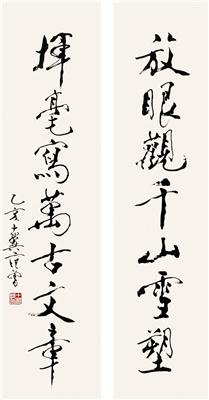 放眼觀千山雪塑
揮毫寫萬古文章
乙亥十翼范曾